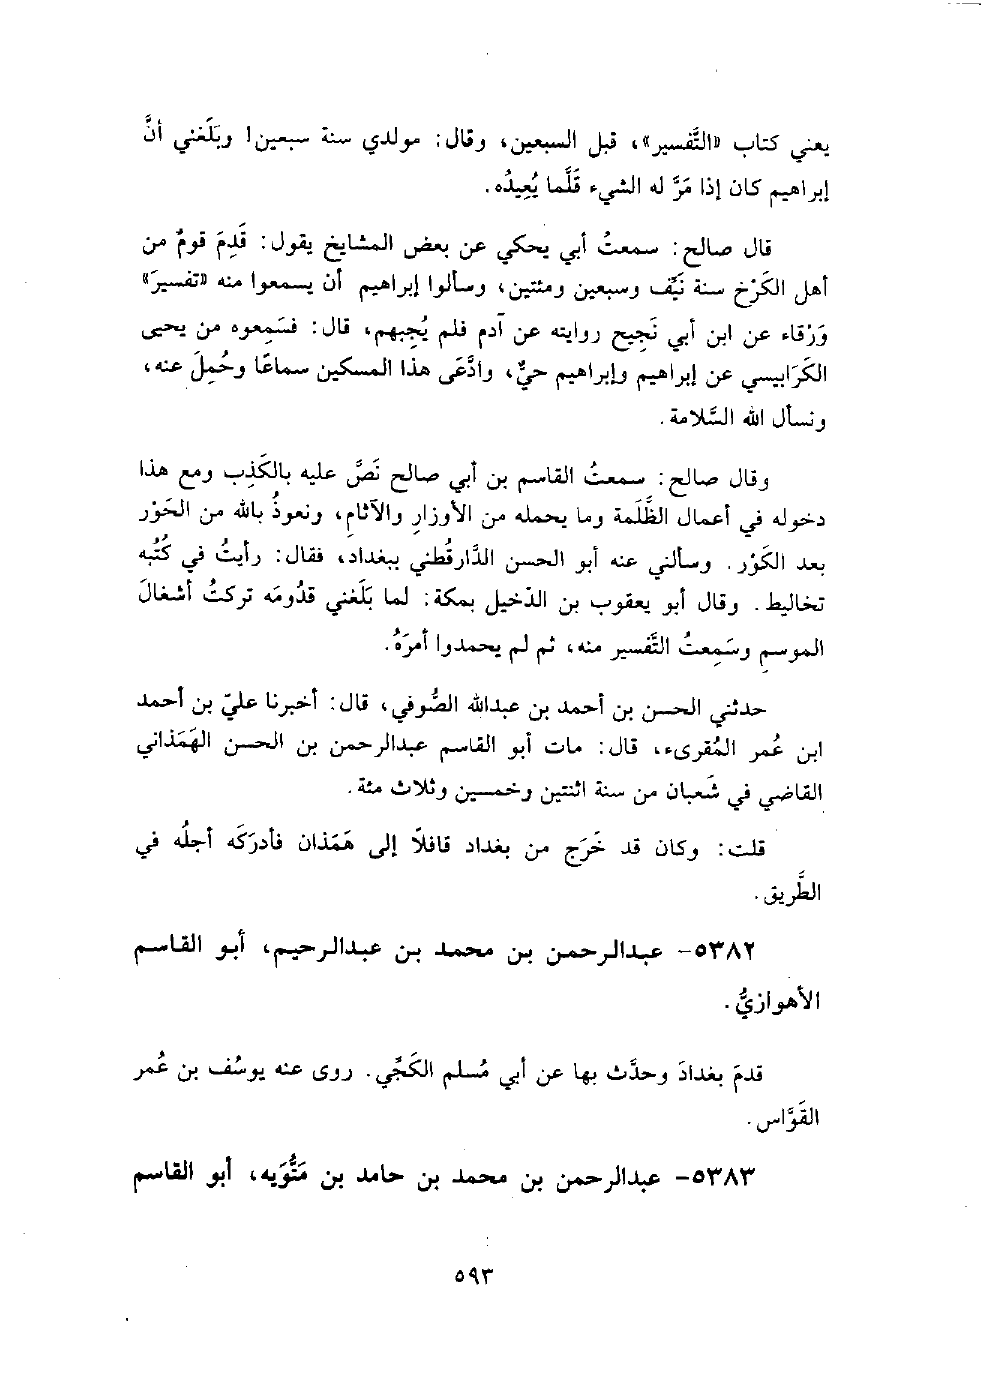 يعني كتاب «التَّفسير»، قبل السبعين، وقال: مولدي سنة سبعين! وبَلَغني أنَّ
إبراهيم كان إذا مَرَّ له الشيء قَلَّما يُعِيدُه.
قال صالح: سمعتُ أبي يحكي عن بعض المشايخ يقول: قَدِمَ قومٌ من
أهل الكَرْخ سنة نَيِّف وسبعين ومئتين، وسألوا إبراهيم أن يسمعوا منه «تفسيرَ»
وَرْقاء عن ابن أبي نَجِيح روايته عن آدم فلم يُجبهم، قال: فسَمِعوه من يحيى
الكَرَابيسي عن إبراهيم وإبراهيم حيٌّ، وادَّعَى هذا المسكين سماعًا وحُمِلَ عنه،
ونسأل الله السَّلامة.
وقال صالح: سمعتُ القاسم بن أبي صالح نَصَّ عليه بالكَذِب ومع هذا
دخوله في أعمال الظَّلَمة وما يحمله من الأوزارِ والآثامِ، ونعوذُ بالله من الحَوْر
بعد الكَوْر. وسألني عنه أبو الحسن الدَّارقُطني ببغداد، فقال: رأيتُ في كُتُبه
تخاليط. وقال أبو يعقوب بن الدَّخيل بمكة: لما بَلَغني قدُومَه تركتُ أشغالَ
الموسمِ وسَمِعتُ التَّفسير منه، ثم لم يحمدوا أمرَهُ.
حدثني الحسن بن أحمد بن عبدالله الصُّوفي، قال: أخبرنا عليّ بن أحمد
ابن عُمر المُقرىء، قال: مات أبو القاسم عبدالرحمن بن الحسن الهَمَذاني
القاضي في شَعبان من سنة اثنتين وخمسين وثلاث مئة.
قلت: وكان قد خَرَج من بغداد قافلًا إلى هَمَذان فأدرَكَه أجلُه في
الطَّريق.
٥٣٨٢- عبدالرحمن بن محمد بن عبدالرحيم، أبو القاسم
الأهوازيُّ.
قدمَ بغدادَ وحدَّث بها عن أبي مُسلم الكَجِّي. روى عنه يوسُف بن عُمر
القَوَّاس.
٥٣٨٣- عبدالرحمن بن محمد بن حامد بن مَتُّوَيه، أبو القاسم
٥٩٣